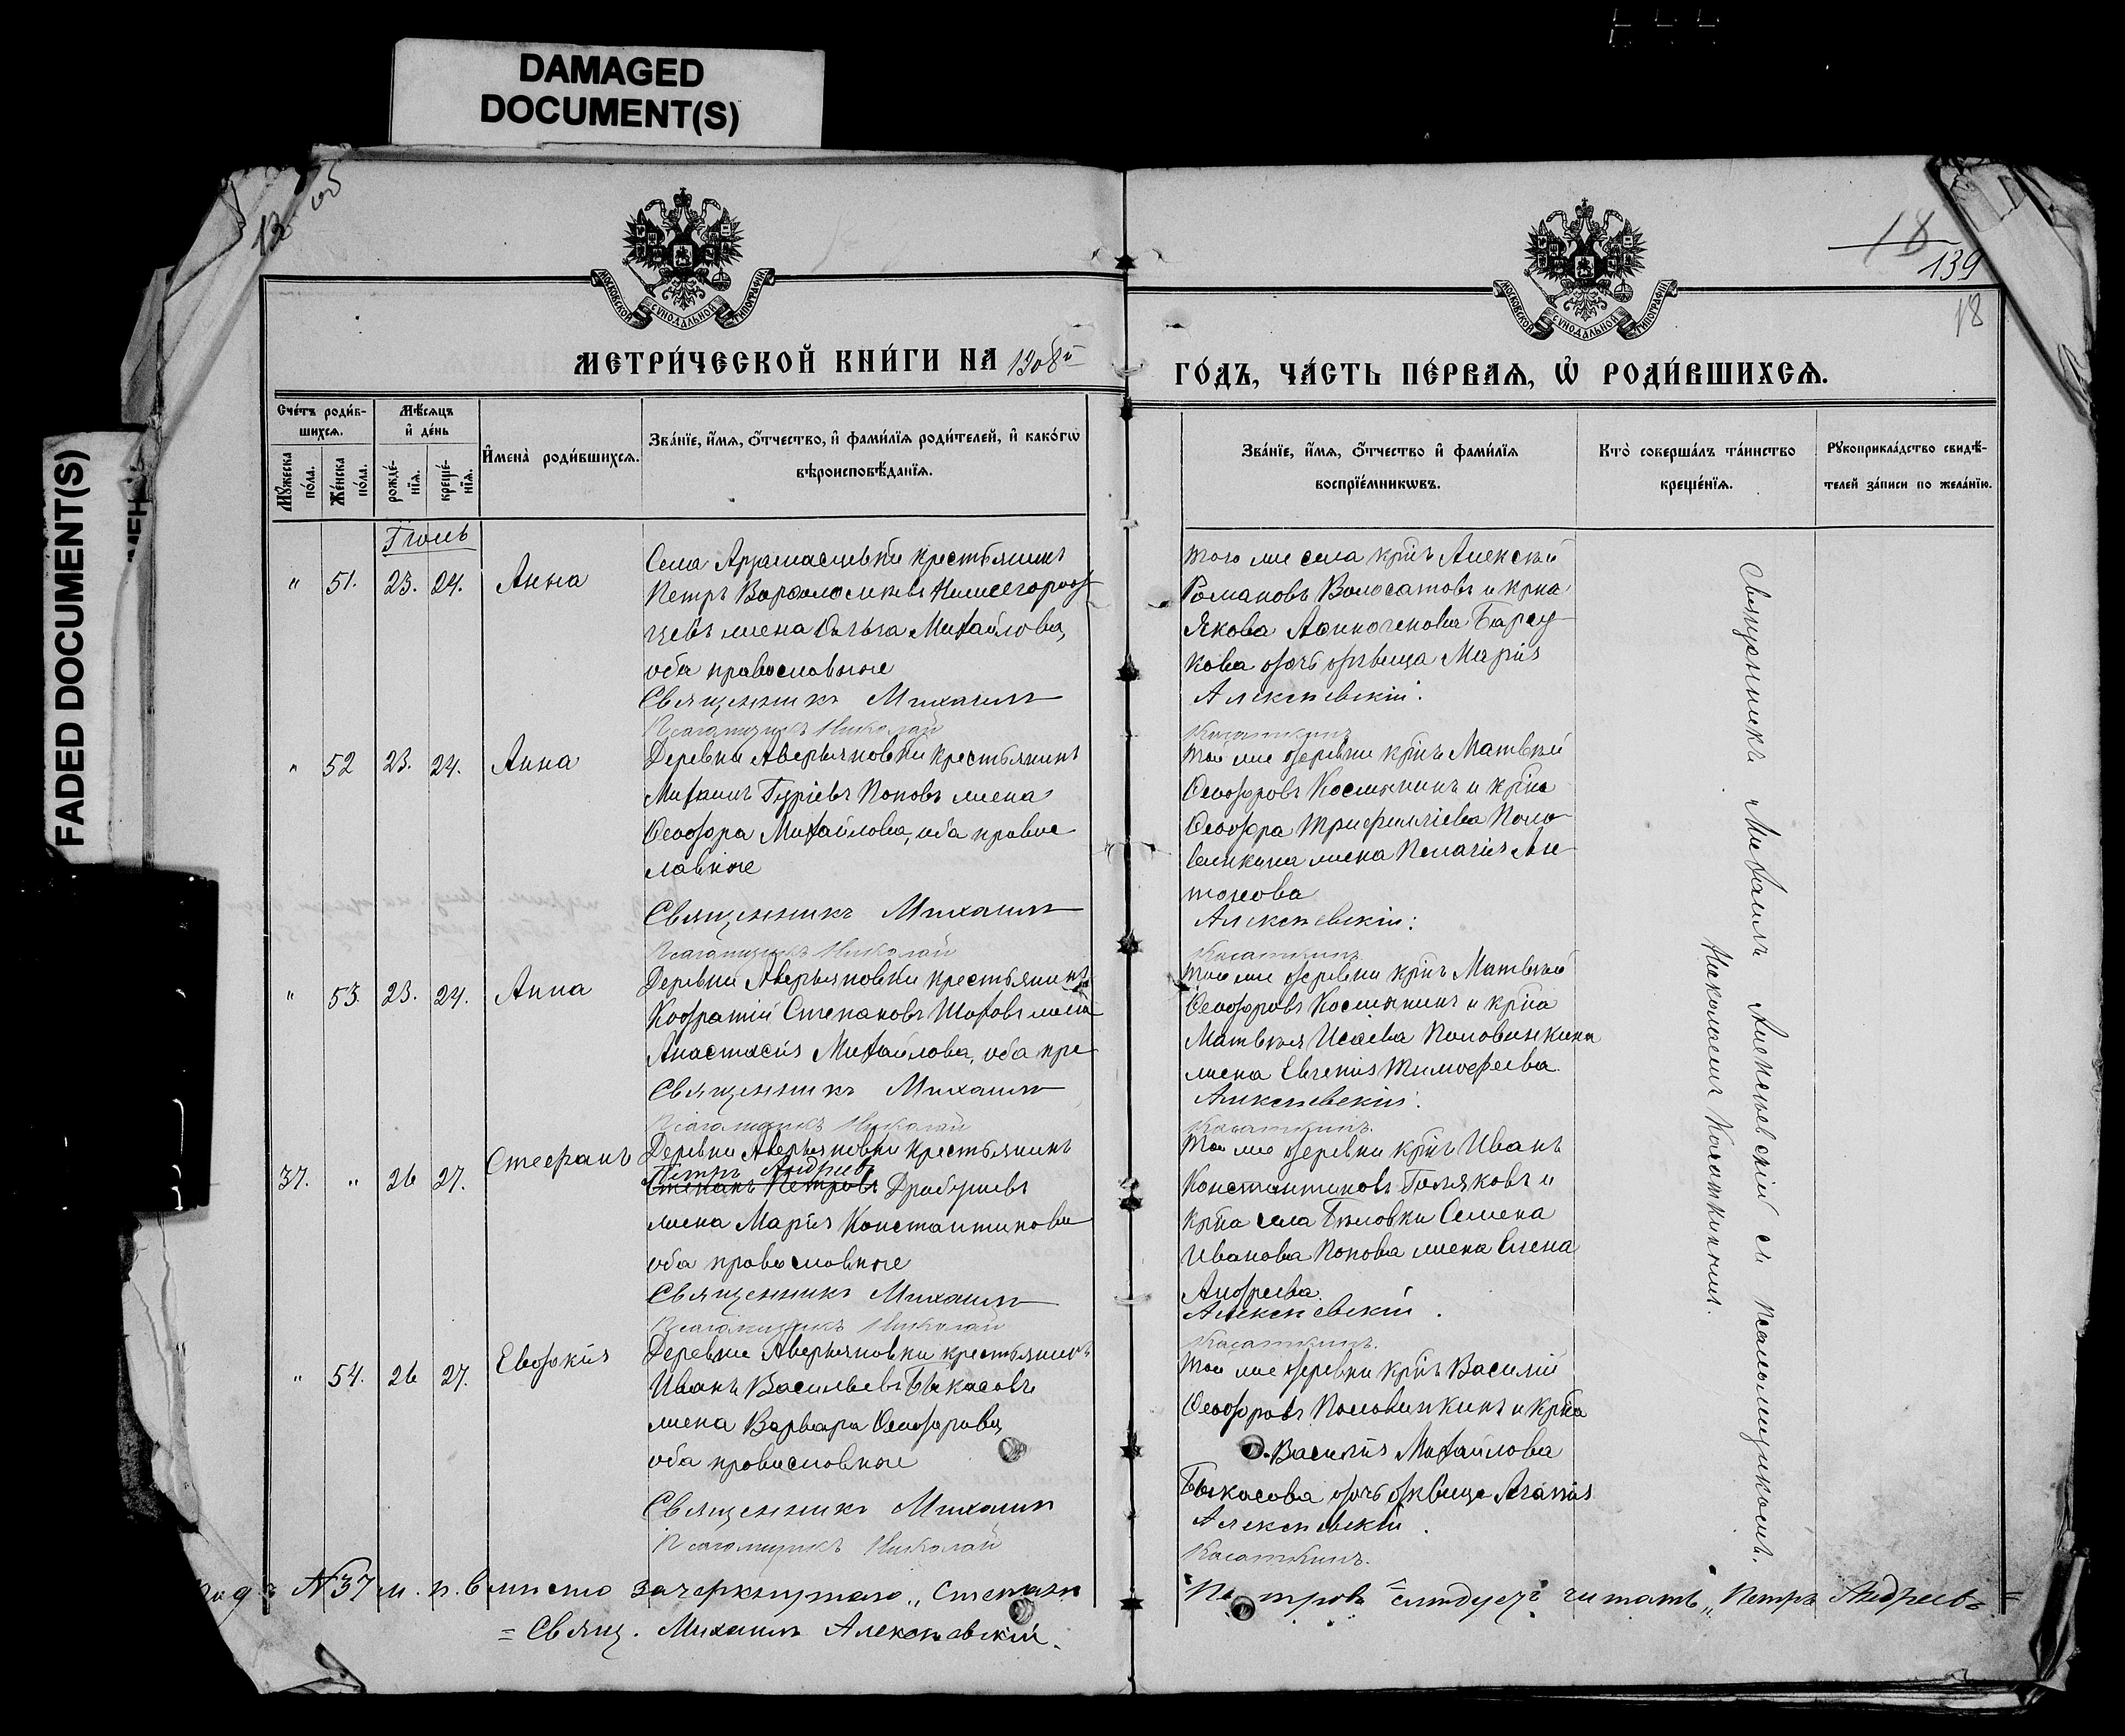 DAMAGED
DOCUMENT(S)
FADED DOCUMENT(S)
18
139
18
МОСКОВСКОЙ СѴНОДАЛЬНОЙ ТИПОГРАФІИ
МОСКОВСКОЙ СѴНОДАЛЬНОЙ ТИПОГРАФІИ
МЕТРИ́ЧЕСКОЙ КНИ́ГИ НА 1908й
ГО́ДЪ, ЧА́СТЬ ПЕ́РВАѦ, Ѡ҆ РОДИ́ВШИХСѦ.
Сче́тъ роди́в-
шихсѧ.
Мꙋ́жеска
по́ла.
Же́нска
по́ла.
Мѣ́сѧцъ
и҆ де́нь
рожде́-
нїѧ.
креще́-
нїѧ.
И҆мена̀ роди́вшихсѧ.
Зва́нїе, и҆́мѧ, ѻ҆́тчество, и҆ фами́лїѧ роди́телей, и҆ како́гѡ
вѣроисповѣ́данїѧ.
Зва́нїе, и҆́мѧ, ѻ҆́тчество и҆ фами́лїѧ
воспрїе́мникѡвъ.
Кто̀ соверша́лъ та́инство
креще́нїѧ.
Рꙋкоприкла́дство свидѣ́-
телей за́писи по жела́нїю.
Іюль
" 51. 23. 24. Анна
Села Арзамасцевки крестьянинъ
Петръ Варѳоломеевъ Нижегород
цевъ жена Ольга Михайлова,
оба православные
Священникъ Михаилъ
Псаломщикъ Николай
того же села кр͞нъ Алексѣй
Романовъ Волосатовъ и кр͞на
Якова Аѳиногенова Барсу
кова дочь дѣвица Марія
Алексѣевскій.
Касаткинъ
" 52 23. 24. Анна
Деревни Аверьяновки крестьянинъ
Михаилъ Гуріевъ Поповъ жена
Ѳеодора Михайлова, оба правос
лавные
Священникъ Михаилъ
Псаломщикъ Николай
той же деревни кр͞нъ Матвѣй
Ѳеодоровъ Космынинъ и кр͞на
Ѳеодора Трифиллiева Поло
винкина жена Пелагія Ан
тонова
Алексѣевскій:
Касаткинъ
" 53. 23. 24. Анна
Деревни Аверьяновки крестьянинъ
Кодратій Степановъ Шаховъ жена
Анастасія Михайлова, оба пра
Священникъ Михаилъ
Псаломщикъ Николай
той же деревни кр͞нъ Матвѣй
Ѳеодоровъ Космынинъ и кр͞на
Матвѣя Исаева Половинкина
жена Евгенія Тимофеева
Алексѣевскій.
Касаткинъ.
37. " 26 27. Стефанъ
Деревни Аверьяновки крестьянинъ
Петръ Андреевъ
Степанъ Петровъ Драбушевъ
жена Марія Константинова
оба православные
Священникъ Михаилъ
Псаломщикъ Николай
той же деревни кр͞нъ Иванъ
Константиновъ Поляковъ и
кр͞на села Бѣловки Семена
Иванова Попова жена Елена
Андреева.
Алексѣевскій.
Касаткинъ.
" 54. 26 27. Евдокія
Деревни Аверьяновки крестьянинъ
Иванъ Васильевъ Быкасовъ
жена Варвара Ѳеодорова,
оба православные
Священникъ Михаилъ
Псаломщикъ Николай
той же деревни кр͞нъ Василій
Ѳеодоровъ Половинкинъ и кр͞на
Василія Михайлова
Быкасова дочь дѣвица Агапія
Алексѣевскій.
Касаткинъ.
Священникъ Михаилъ Алексѣевскій съ псаломщикомъ.
Николаемъ Касаткинымъ.
Подъ №37 м. п. вмѣсто зачеркнутаго „Степанъ Петровъ" слѣдуетъ читать „Петръ Андреевъ=
= Свящ. Михаилъ Алексѣевскій.